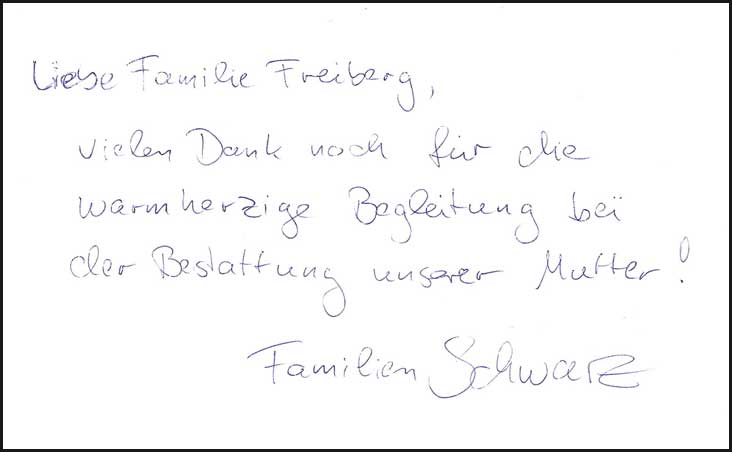 Liebe Familie Freiberg,
vielen Dank noch für die
warmherzige Begleitung bei
der Bestattung unserer Mutter!
Familien Schwarz